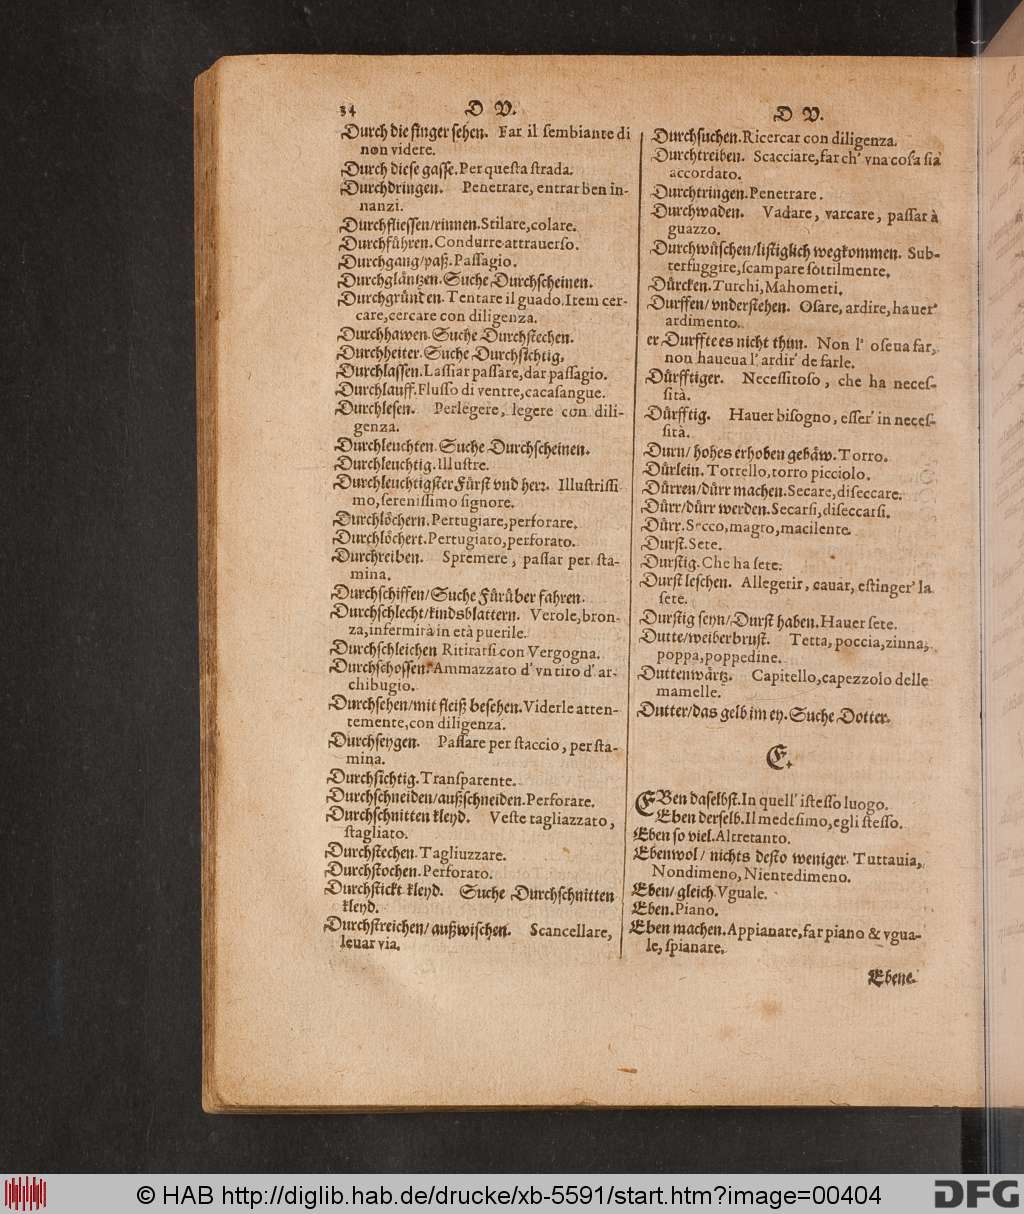 34
D V.
Durch die finger sehen. Far il sembiante di
non videre.
Durch diese gasse. Per questa strada.
Durchdringen. Penetrare, entrar ben in-
nanzi.
Durchfliessen/rinnen. Stilare, colare.
Durchführen. Condurre attrauerso.
Durchgang/paß. Passagio.
Durchgläntzen. Suche Durchscheinen.
Durchgründen. Tentare il guado. Item cer-
care, cercare con diligenza.
Durchhawen. Suche Durchstechen.
Durchheiter. Suche Durchsichtig.
Durchlassen. Lassiar passare, dar passagio.
Durchlauff. Flusso di ventre, cacasangue.
Durchlesen. Perlegere, legere con dili-
genza.
Durchleuchten. Suche Durchscheinen.
Durchleuchtig. Illustre.
Durchleuchtigster Fürst vnd herr. Illustrissi
mo, serenissimo signore.
Durchlöchern. Pertugiare, perforare.
Durchlöchert. Pertugiato, perforato.
Durchreiben. Spremere, passar per sta-
mina.
Durchschiffen/Suche Fürüber fahren.
Durchschlecht/kindsblattern. Verole, bron-
za, infermità in età puerile.
Durchschleichen Ritirarsi con Vergogna.
Durchschossen. Ammazzato d' vn tiro d' ar-
chibugio.
Durchsehen/mit fleiß besehen. Viderle atten-
temente, con diligenza.
Durchseygen. Passare per staccio, per sta-
mina.
Durchsichtig. Transparente.
Durchschneiden/außschneiden. Perforare.
Durchschnitten kleyd. Veste tagliazzato,
stagliato.
Durchstechen. Tagliuzzare.
Durchstochen. Perforato.
Durchstickt kleyd. Suche Durchschnitten
kleyd.
Durchstreichen/außwischen. Scancellare,
leuar via.
D V.
Durchsuchen. Ricercar con diligenza.
Durchtreiben. Scacciare, far ch' vna cosa sia
accordato.
Durchtringen. Penetrare.
Durchwaden. Vadare, varcare, passar à
guazzo.
Durchwüschen/listiglich wegkommen. Sub-
terfuggire, scampare sottilmente.
Dürcken. Turchi, Mahometi.
Durffen/vnderstehen. Osare, ardire, hauer'
ardimento.
er Durffte es nicht thun. Non l' oseua far,
non haueua l' ardir' de farle.
Dürfftiger. Necessitoso, che ha neces-
sità.
Dürfftig. Hauer bisogno, esser' in neces-
sità.
Durn/hohes erhoben gebäw. Torro.
Dürlein. Torrello, torro picciolo.
Dürren/dürr machen. Secare, diseccare.
Dürr/dürr werden. Secarsi, diseccarsi.
Dürr. Secco, magro, macilente.
Durst. Sete.
Durstig. Che ha sete.
Durst leschen. Allegerir, cauar, estinger' la
sete.
Durstig seyn/Durst haben. Hauer sete.
Dutte/weiberbrust. Tetta, poccia, zinna,
poppa, poppedine.
Duttenwärtz. Capitello, capezzolo delle
mamelle.
Dutter/das gelb im ey. Suche Dotter.
E.
EBen daselbst. In quell' istesso luogo.
Eben derselb. Il medesimo, egli stesso.
Eben so viel. Altretanto.
Ebenwol/nichts desto weniger. Tuttauia,
Nondimeno, Nientedimeno.
Eben/gleich. Vguale.
Eben. Piano.
Eben machen. Appianare, far piano & vgua-
le, spianare.
Ebene.
© HAB http://diglib.hab.de/drucke/xb-5591/start.htm?image=00404
DFG